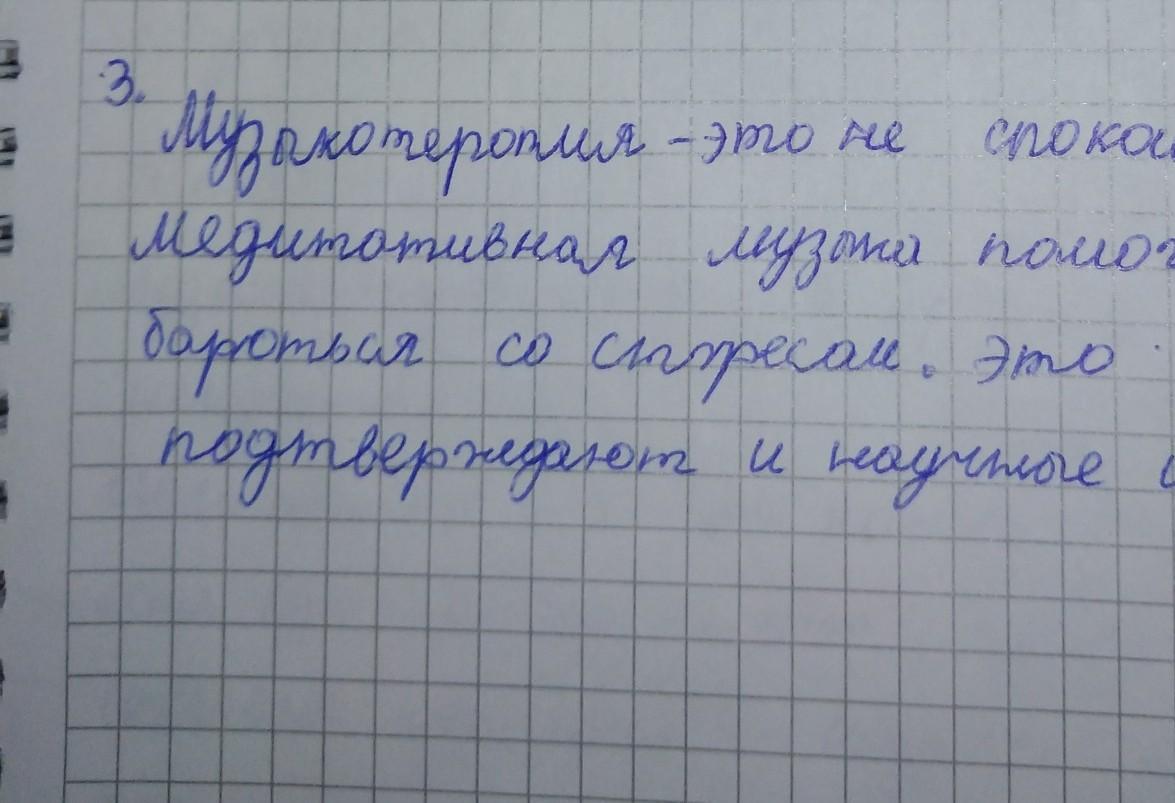 3.
Музыкотерапия - это не спокой
медитативная музыка помог
бароться со стресам. это
подтверждают и научные